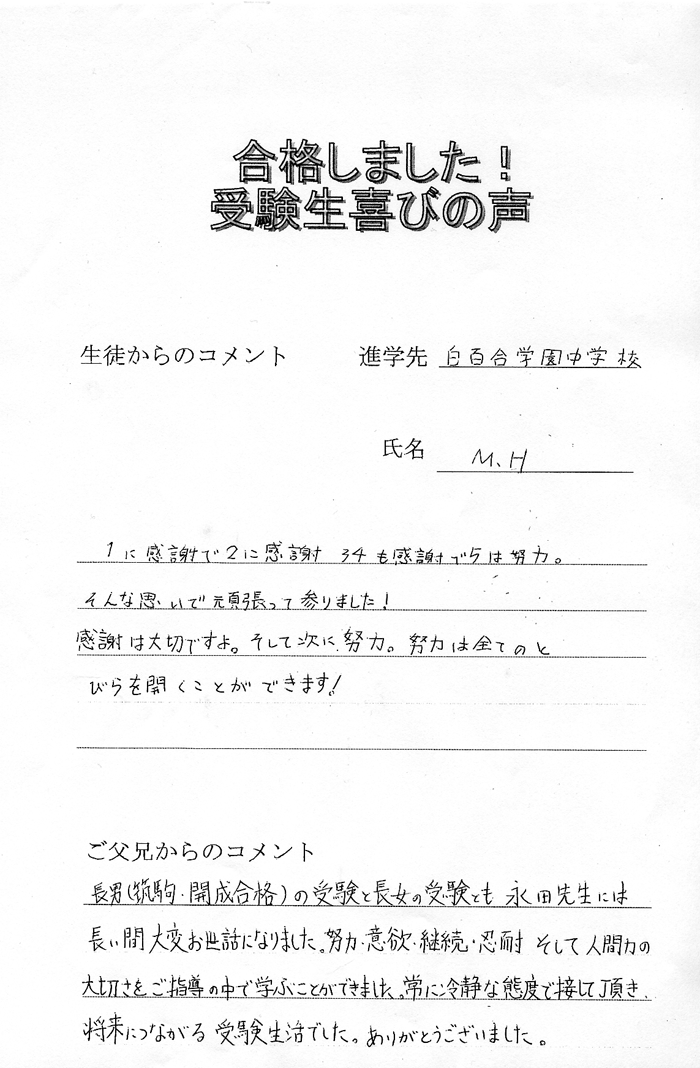 合格しました！
受験生喜びの声
生徒からのコメント 進学先 白百合学園中学校
氏名 M.H
1に感謝で2に感謝 34も感謝で5は努力。
そんな思いで頑張って参りました!
感謝は大切ですよ。そして次に努力。努力は全てのと
びらを開くことができます!
ご父兄からのコメント
長男(筑駒・開成合格)の受験と長女の受験とも 永田先生には
長い間大変お世話になりました。努力・意欲・継続・忍耐 そして人間力の
大切さをご指導の中で学ぶことができました。常に冷静な態度で接して頂き、
将来につながる受験生活でした。ありがとうございました。